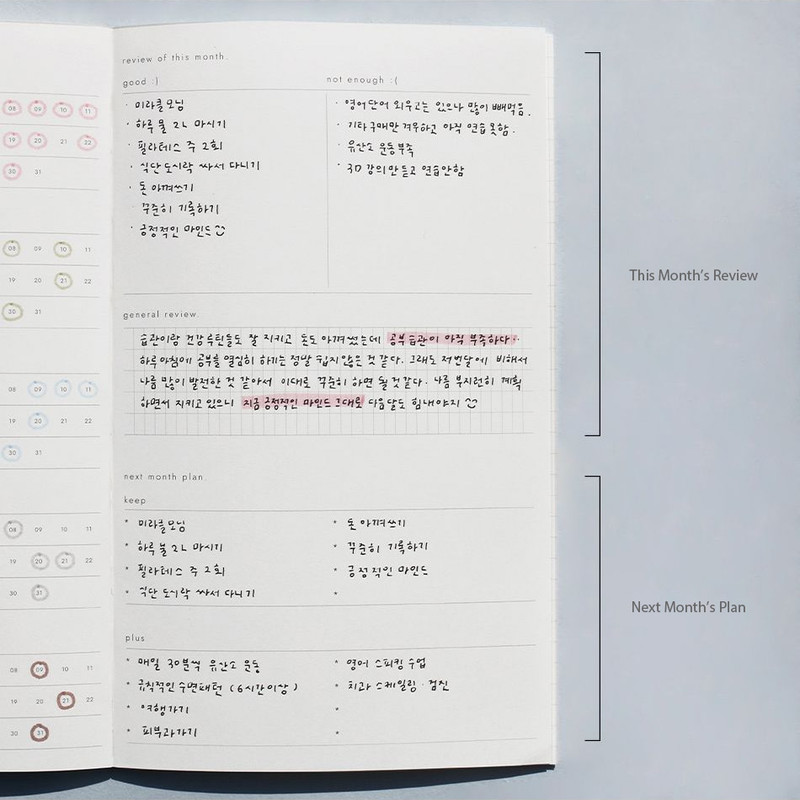 review of this month.
good :)
· 미라클모닝
· 하루 물 2L 마시기
· 필라테스 주 2회
· 식단 도시락 싸서 다니기
· 돈 아껴쓰기
· 꾸준히 기록하기
· 긍정적인 마인드
not enough :(
· 영어단어 외우고는 있으나 많이 빼먹음.
· 기타 구매만 겨우하고 아직 연습못함.
· 유산소 운동부족
· 3D 강의만 듣고 연습안함
general review.
습관이랑 건강루틴들도 잘 지키고 돈도 아껴썼는데 공부습관이 아직 부족하다.
하루아침에 공부를 열심히 하기는 정말 쉽지 않은 것 같다. 그래도 저번달에 비해서
나름 많이 발전한 것 같아서 이대로 꾸준히 하면 될 것 같다. 나름 부지런히 계획
하면서 지키고 있으니 지금 긍정적인 마인드 그대로 다음달도 힘내야지
next month plan
keep
* 미라클모닝
* 하루 물 2L 마시기
* 필라테스 주 2회
* 식단 도시락 싸서 다니기
* 돈 아껴쓰기
* 꾸준히 기록하기
* 긍정적인 마인드
*
plus
* 매일 30분씩 유산소 운동
* 규칙적인 수면패턴 (6시간이상)
* 여행가기
* 피부과가기
* 영어 스피킹 수업
* 치과 스케일링 · 검진
*
*
08 09 10 11
19 20 21 22
30 31
08 09 10 11
19 20 21 22
30 31
08 09 10 11
19 20 21 22
30 31
08 09 10 11
19 20 21 22
30 31
08 09 10 11
19 20 21 22
30 31
This Month's Review
Next Month's Plan